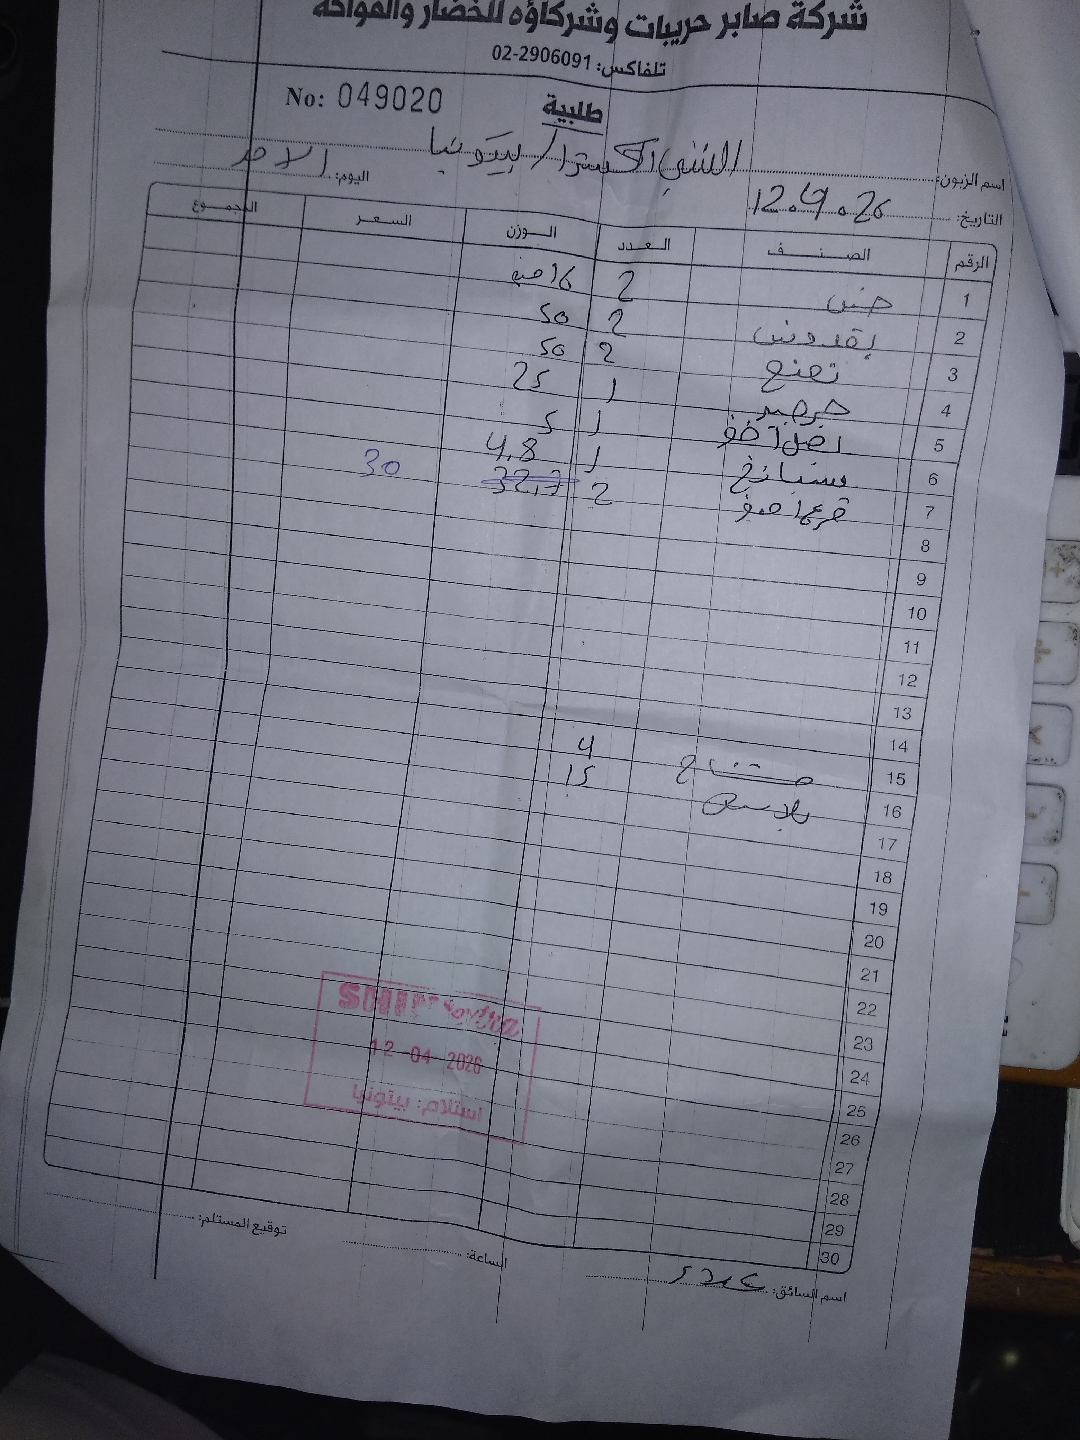 شركة صابر حريبات وشركاؤه للخضار والفواكه
تلفاكس: 02-2906091
طلبية
No: 049020
اسم الزبون: الشني اكسترا / بيتونيا
التاريخ: 12.4.26 اليوم: الاحد
الرقم الصنف العدد الوزن السعر المجموع
1 خس 2
2 بقدونس 2 50
3 نعنع 2 50
4 جرجير 1 25
5 بصل اخضر 1 5
6 سبانخ 1 4.8
7 قرع اصفر 2 32.7 30
8
9
10
11
12
13
14
15 4
16 15
17
18
19
20
21
22
23
24
25
26
27
28
29
30
12-04-2026
استلام: بيتونيا
اسم السائق: الساعة: توقيع المستلم: